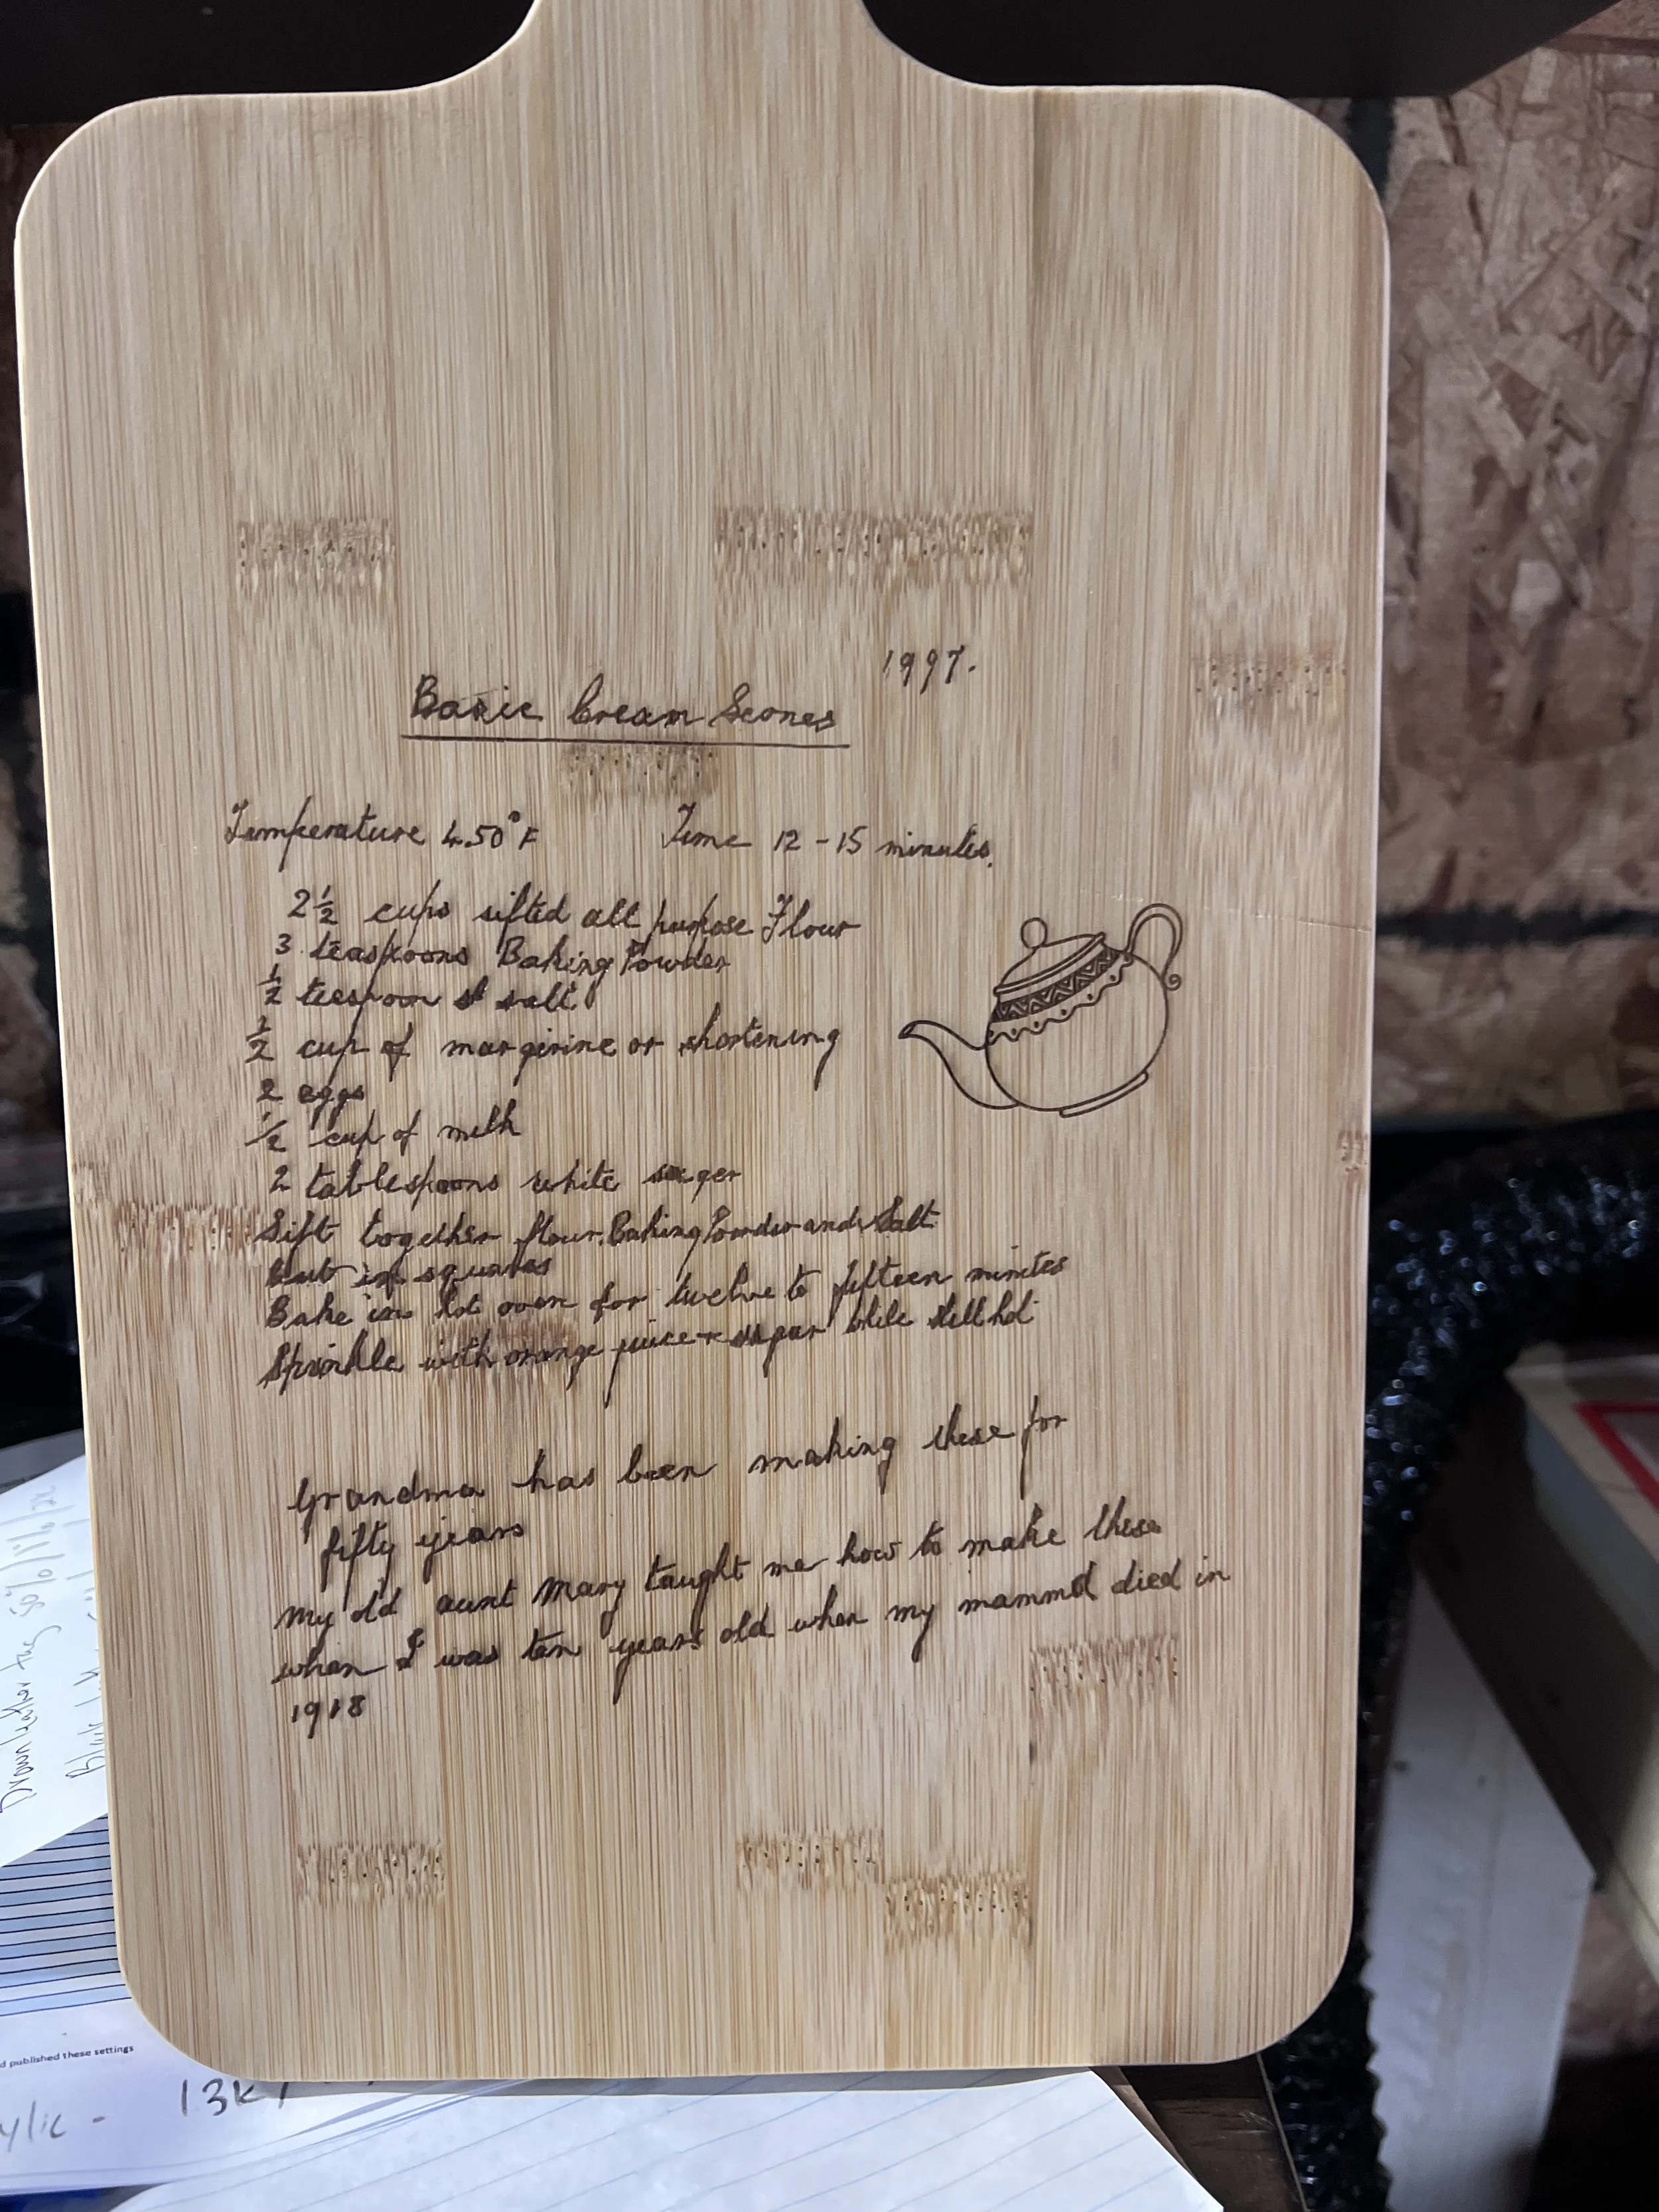 1997.
Basic Cream Scones
Temperature 450°F Time 12-15 minutes.
2½ cups sifted all purpose Flour
3 teaspoons Baking Powder
½ teespoon salt
½ cup of margerine or shortening
2 eggs
½ cup of milk
2 tablespoons white suger
Sift together flour, Baking Powder and Salt
Cut in squares
Bake in hot oven for twelve to fifteen minites
Sprinkle with orange juice + sugar while still hot
Grandma has been making these for
fifty years
My old aunt Mary taught me how to make these
when I was ten years old when my mamma died in
1918
50% / 11% /
d published these settings
ylic - 13K /